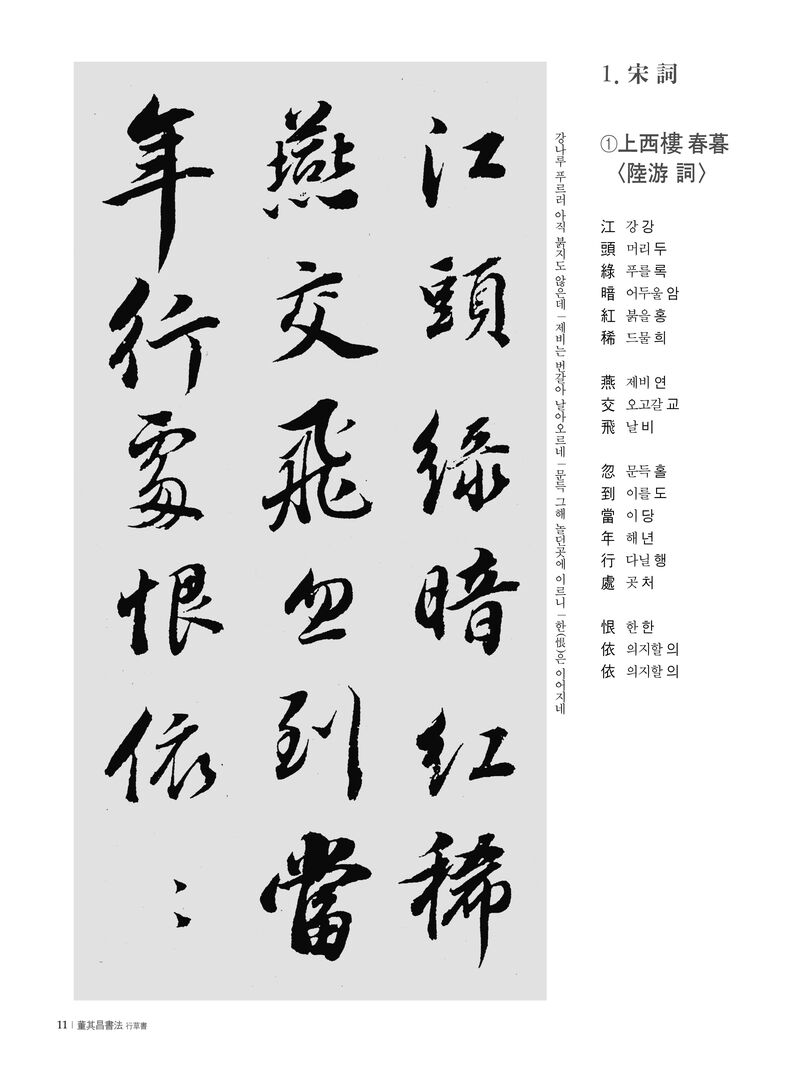 1. 宋詞
①上西樓 春暮
〈陸游 詞〉
江 강 강
頭 머리 두
綠 푸를 록
暗 어두울 암
紅 붉을 홍
稀 드물 희
燕 제비 연
交 오고갈 교
飛 날 비
忽 문득 홀
到 이를 도
當 이 당
年 해 년
行 다닐 행
處 곳 처
恨 한 한
依 의지할 의
依 의지할 의
강나루 푸르러 아직 붉지도 않은데 | 제비는 번갈아 날아오르네 | 문득 그해 놀던곳에 이르니 | 한(恨)은 이어지네
江頭綠暗紅稀
燕交飛忽到當
年行處恨依〻
11 | 董其昌書法 行草書